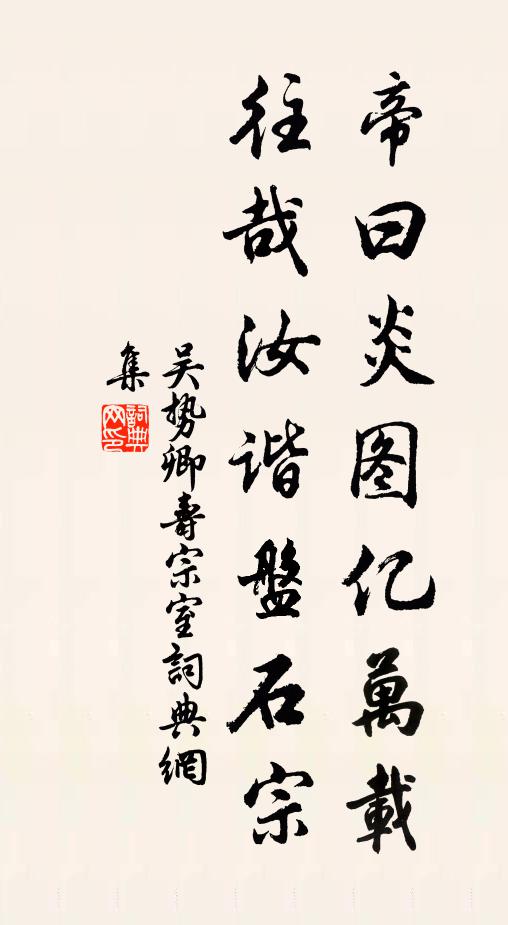 帝曰炎图亿萬載
往哉汝谐盤石宗
吴势卿壽宗室詞典網
集
詞典网印